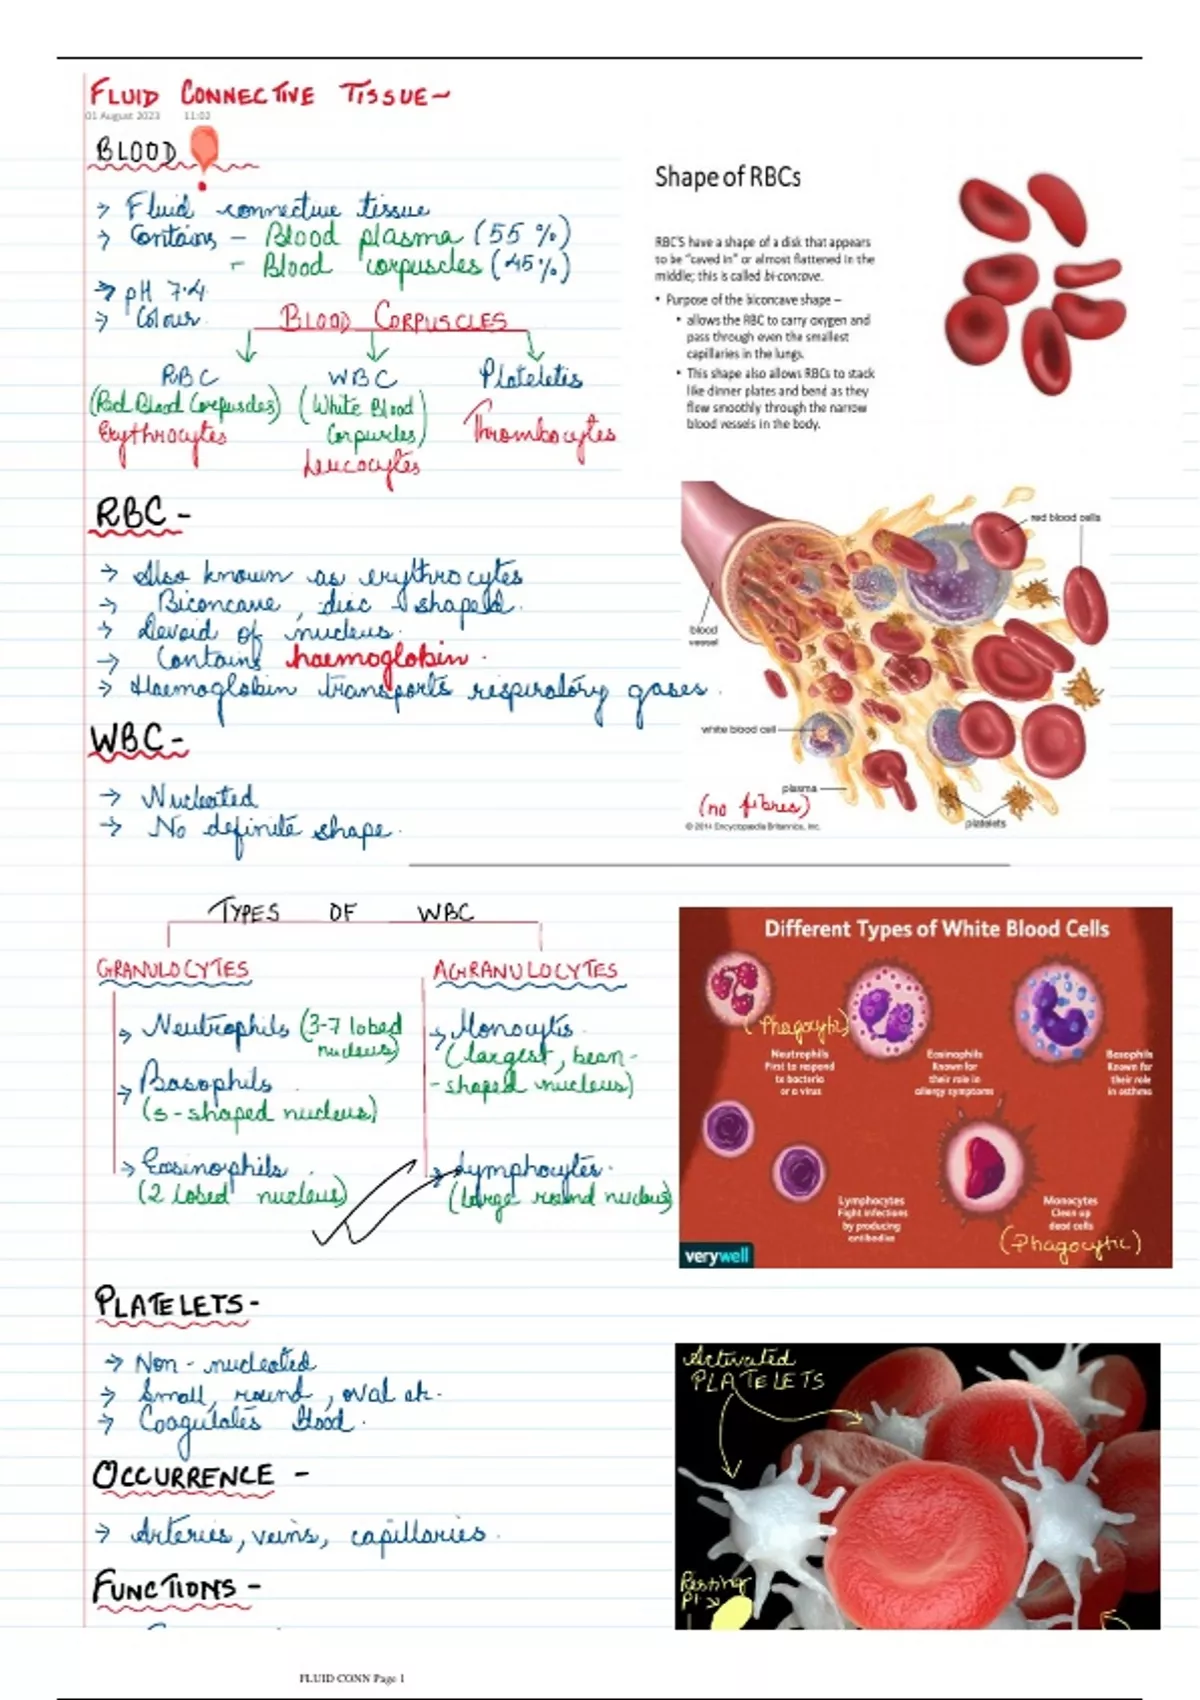 FLUID CONNECTIVE TISSUE~
01 August 2023 11:02
BLOOD
→ Fluid connective tissue
→ Contains - Blood plasma (55 %)
- Blood corpuscles (45%)
→ pH 7.4
→ Colour.
BLOOD CORPUSCLES
RBC
(Red Blood Corpuscles)
Erythrocytes
WBC
(White Blood
Corpuscles)
Leucocytes
Platelets
Thrombocytes
Shape of RBCs
RBC'S have a shape of a disk that appears
to be "caved in" or almost flattened in the
middle; this is called bi-concave.
• Purpose of the biconcave shape –
• allows the RBC to carry oxygen and
pass through even the smallest
capillaries in the lungs.
• This shape also allows RBCs to stack
like dinner plates and bend as they
flow smoothly through the narrow
blood vessels in the body.
RBC -
→ Also known as erythrocytes
→ Biconcave, disc - shaped.
→ Devoid of nucleus.
→ Contains haemoglobin.
→ Haemoglobin transports respiratory gases.
red blood cells
blood
vessel
white blood cell
plasma
(no fibres)
platelets
© 2014 Encyclopædia Britannica, Inc.
WBC -
→ Nucleated
→ No definite shape.
TYPES OF WBC
GRANULOCYTES
→ Neutrophils (3-7 lobed
nucleus)
→ Basophils
(s-shaped nucleus)
→ Eosinophils
(2 lobed nucleus)
AGRANULOCYTES
→ Monocytes
(largest, bean-
-shaped nucleus)
→ Lymphocytes.
(large round nucleus)
Different Types of White Blood Cells
(Phagocytic)
Neutrophils
First to respond
to bacteria
or a virus
Eosinophils
Known for
their role in
allergy symptoms
Basophils
Known for
their role
in asthma
Lymphocytes
Fight infections
by producing
antibodies
Monocytes
Clean up
dead cells
(Phagocytic)
verywell
PLATELETS -
→ Non - nucleated
→ Small, round, oval etc.
→ Coagulates blood.
Activated
PLATELETS
Resting
OCCURRENCE -
→ Arteries, veins, capillaries.
FUNCTIONS -
FLUID CONN Page 1